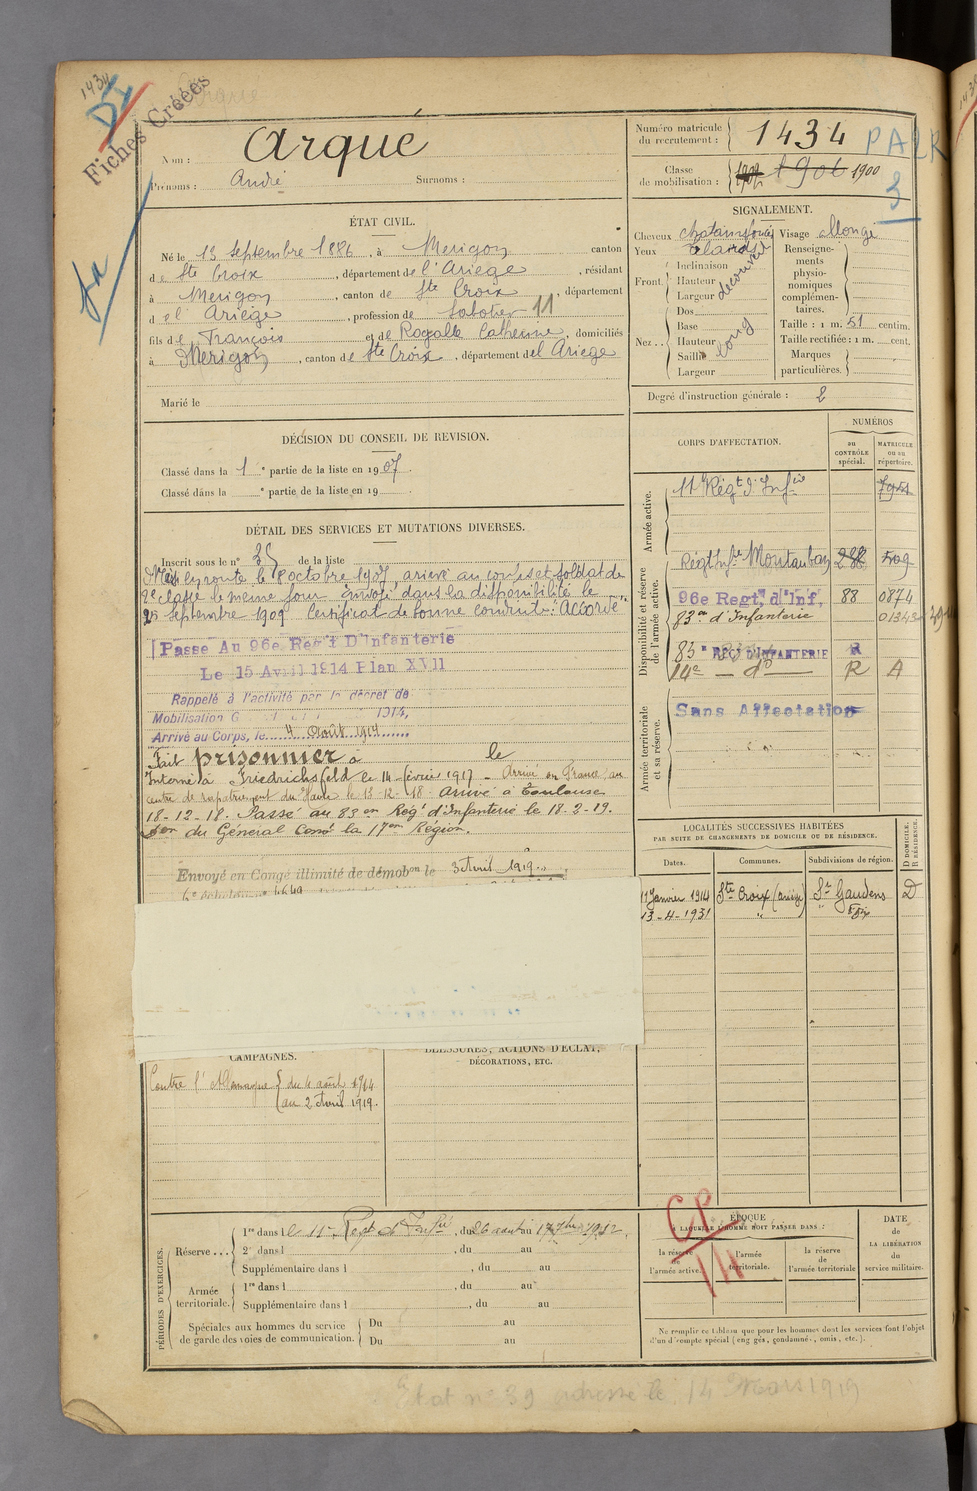 1434
Fiches Créées
Nom : Arqué
Prénoms : André Surnoms :
Numéro matricule du recrutement : 1434
PALR
Classe de mobilisation : 1906 1900
3
ÉTAT CIVIL.
Né le 13 Septembre 1886, à Merigon canton
de Ste Croix, département de l'Ariège, résidant
à Merigon, canton de Ste Croix, département
d el' Ariège, profession de Sabotier 11
fils de François et de Rogalle Catherine, domiciliés
à Merigon, canton de Ste Croix, département del Ariege
Marié le
SIGNALEMENT.
Cheveux chatain foncé Visage allongé
Yeux
Front. Inclinaison
Hauteur
Largeur
découvert
Nez .. Dos
Base
Hauteur
Saillie
Largeur
long
Renseignements physionomiques complémentaires.
Taille : 1 m. 51 centim.
Taille rectifiée : 1 m. cent.
Marques particulières.
Degré d'instruction générale : 2
DÉCISION DU CONSEIL DE REVISION.
Classé dans la 1 e partie de la liste en 1907.
Classé dans la e partie de la liste en 19
DÉTAIL DES SERVICES ET MUTATIONS DIVERSES.
Inscrit sous le n° 35 de la liste
Mis en route le 8 octobre 1907, arrivé au corps et soldat de
2e classe le même jour envoyé dans la disponibilité le
25 Septembre 1909 Certificat de bonne conduite : Accordé
Passe Au 96e Regt D'Infanterie
Le 15 Avril 1914 Plan XVII
Rappelé à l'activité par le décret de
Mobilisation G 1914,
Arrivé au Corps, le 4 Août 1914
Fait prisonnier à le
Interné à Friedrichsfeld le 14 février 1917 - Arrivé en France au
centre de rapatriement du Havre le 13-12-18 arrivé à Toulouse
18-12-18. Passé au 83en Régt d'Infanterie le 18-2-19.
du Général Comt la 17en Région.
Envoyé en Congé illimité de démobon le 3 Avril 1919
CORPS D'AFFECTATION.
NUMÉROS
au CONTRÔLE spécial.
MATRICULE ou au répertoire.
Armée active.
11 Régt d'Infie 7951
Disponibilité et réserve de l'armée active.
Régt Infie Montauban 288 509
96e Regt, d'Inf. 88 0874
83en d'Infanterie 01343
83e REG D'INFANTERIE R
14e - do - R A
Armée territoriale et sa réserve.
Sans Affectation
LOCALITÉS SUCCESSIVES HABITÉES
PAR SUITE DE CHANGEMENTS DE DOMICILE OU DE RÉSIDENCE.
Dates. Communes. Subdivisions de région. D DOMICILE. R RÉSIDENCE.
11 Janvier 1914 Ste Croix (ariège) St Gaudens D
13-4-1931 " " Foix
CAMPAGNES.
Contre l'Allemagne { du 4 août 1914
au 2 Avril 1919.
BLESSURES, ACTIONS D'ÉCLAT,
DÉCORATIONS, ETC.
PÉRIODES D'EXERCICES.
Réserve ... 1re dans l e 11e Regt d'Infie, du 26 août au 17 7bre 1912.
2e dans l , du au
Supplémentaire dans l , du au
Armée territoriale. 1re dans l , du au
Supplémentaire dans l , du au
Spéciales aux hommes du service de garde des voies de communication. Du au
Du au
CP
14
ÉPOQUE
À LAQUELLE L'HOMME DOIT PASSER DANS :
la réserve de l'armée active.
l'armée territoriale.
la réserve de l'armée territoriale
DATE de LA LIBÉRATION du service militaire.
Ne remplir ce tableau que pour les hommes dont les services font l'objet
d'un d'compte spécial (engagés, condamnés, omis, etc.).
Etat n° 39 adressé le 14 Mars 1919